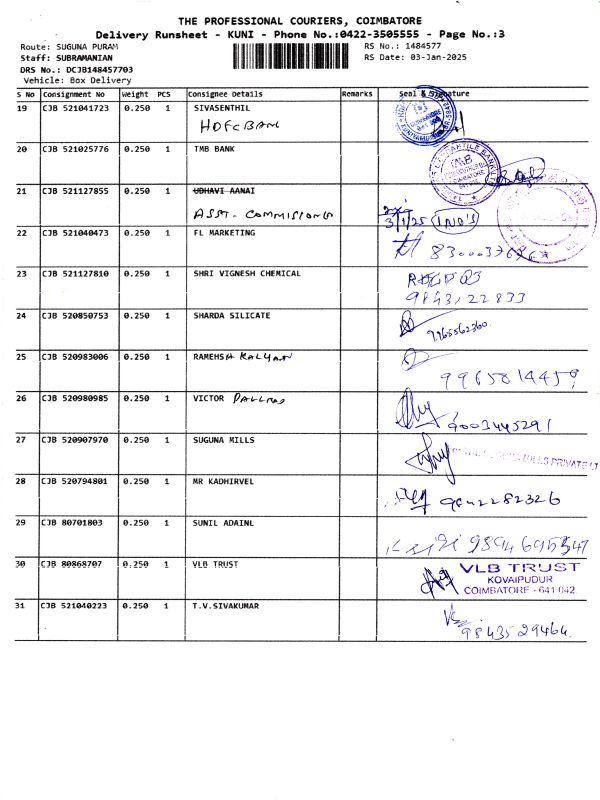 THE PROFESSIONAL COURIERS, COIMBATORE
Delivery Runsheet - KUNI - Phone No.:0422-3505555 - Page No.:3
Route: SUGUNA PURAM RS No.: 1484577
Staff: SUBRAMANIAN RS Date: 03-Jan-2025
DRS No.: DCJB148457703
Vehicle: Box Delivery
S No Consignment No Weight PCS Consignee Details Remarks Seal & Signature
19 CJB 521041723 0.250 1 SIVASENTHIL
HDFC BANK
20 CJB 521025776 0.250 1 TMB BANK
TMB
21 CJB 521127855 0.250 1 UDHAVI AANAI
ASST. COMMISIONER
3/1/25
22 CJB 521040473 0.250 1 FL MARKETING
23 CJB 521127810 0.250 1 SHRI VIGNESH CHEMICAL
9843122833
24 CJB 520850753 0.250 1 SHARDA SILICATE
9965562360
25 CJB 520983006 0.250 1 RAMEHSH KALYAN
26 CJB 520980985 0.250 1 VICTOR
9003445291
27 CJB 520907970 0.250 1 SUGUNA MILLS
MILLS PRIVATE LT
28 CJB 520794801 0.250 1 MR KADHIRVEL
9842282326
29 CJB 80701803 0.250 1 SUNIL ADAINL
9894695347
30 CJB 80868707 0.250 1 VLB TRUST
VLB TRUST
KOVAIPUDUR
COIMBATORE - 641 042.
31 CJB 521040223 0.250 1 T.V.SIVAKUMAR
9843529464.